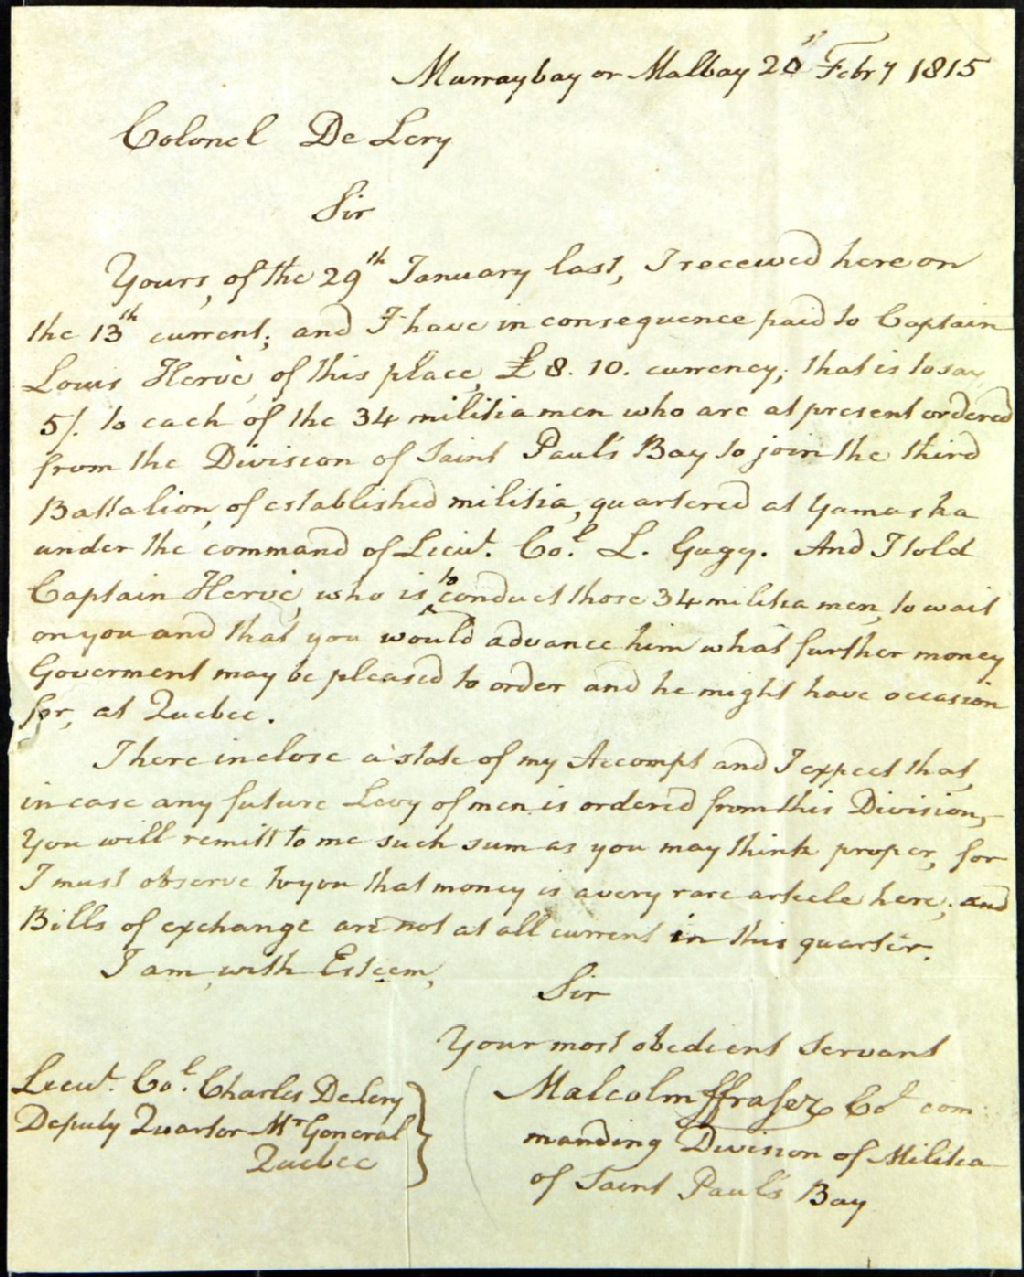 Murraybay or Malbay 20st Febry 1815
Colonel De Lery
Sir
Yours, of the 29th January last, I received here on
the 13th current; and I have in consequence paid to Captain
Louis Hervé, of this place, £8. 10. currency; that is to say
5/. to each of the 34 militia men who are at present ordered
from the Division of Saint Paul's Bay to join the third
Battalion, of established militia, quartered at Yamaska
under the command of Lieut. Col. L. Gugy. And I told
Captain Hervé, who is to conduct those 34 militia men, to wait
on you and that you would advance him what further money
Goverment may be pleased to order and he might have occasion
for, at Quebec.
I here inclose a state of my Accompt and I expect that,
in case any future Levy of men is ordered from this Division,
You will remitt to me such sum as you may think proper, for
I must observe to you that money is a very rare article here; and
Bills of exchange are not at all current in this quarter.
I am, with Esteem,
Sir
Your most obedient Servant
Malcolm ffraser Col com-
manding Division of Militia
of Saint Paul's Bay
Lieut. Col. Charles De Lery
Deputy Quarter Mr General
Quebec